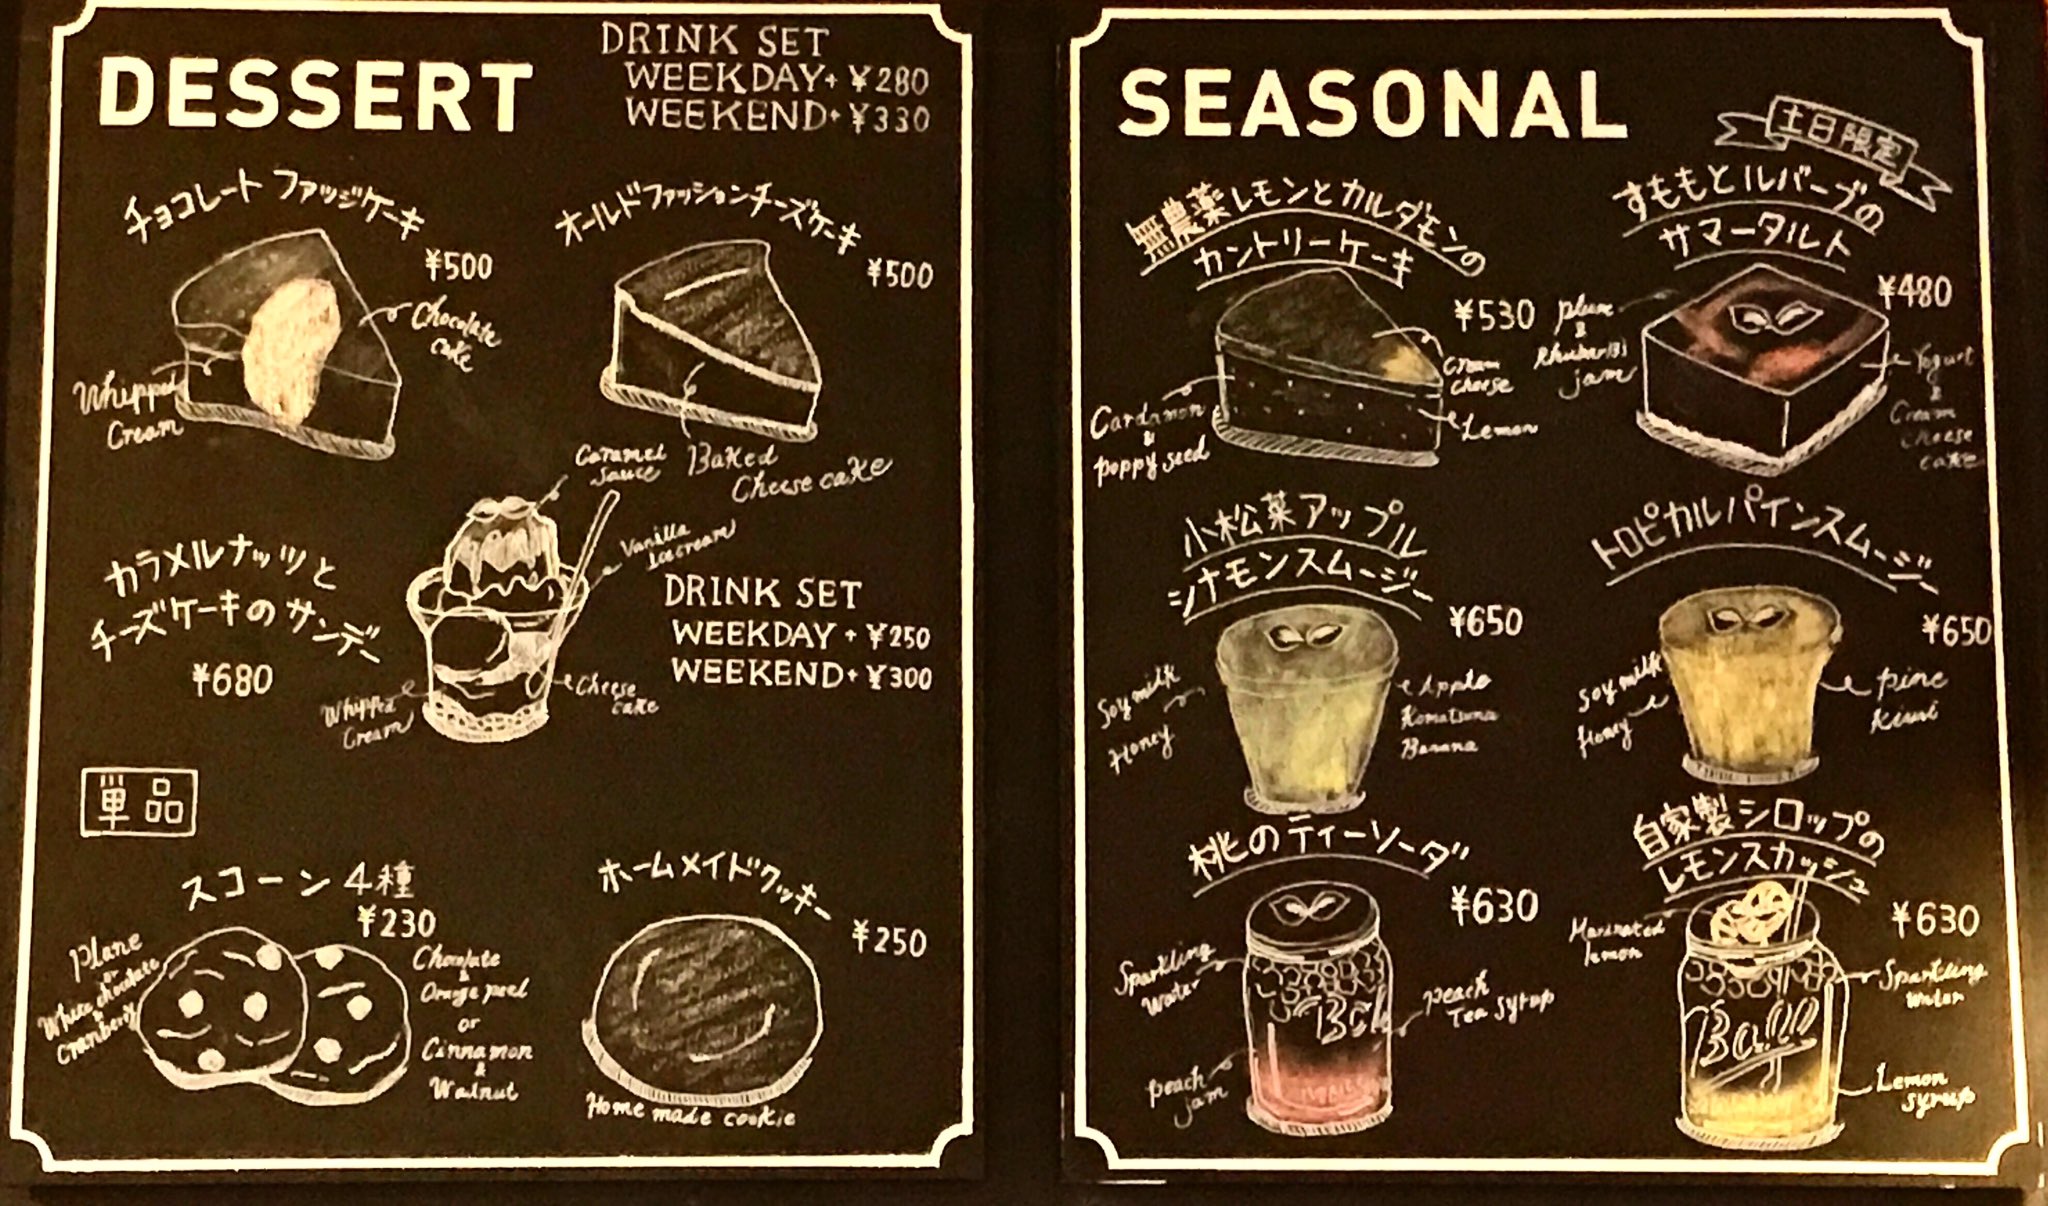 DESSERT
DRINK SET
WEEKDAY+ ¥280
WEEKEND+ ¥330
チョコレート ファッジケーキ
¥500
Chocolate
cake
Whipped
Cream
オールドファッションチーズケーキ
¥500
Baked
Cheese cake
カラメルナッツと
チーズケーキのサンデー
¥680
Caramel
Sauce
Vanilla
Icecream
Whipped
Cream
Cheese
cake
DRINK SET
WEEKDAY + ¥250
WEEKEND+ ¥300
単品
スコーン 4種
¥230
Plane
or
White chocolate
&
Cranberry
Chocolate
&
Orange peel
or
Cinnamon
&
Walnut
ホームメイドクッキー
¥250
Home made cookie
SEASONAL
無農薬レモンとカルダモンの
カントリーケーキ
¥530
Cream
cheese
Lemon
Cardamon
&
poppy seed
土日限定
すももとルバーブの
サマータルト
¥480
plum
&
Rhubarb
jam
Yogurt
&
Cream
cheese
cake
小松菜アップル
シナモンスムージー
¥650
Soy milk
Honey
Apple
Komatsuna
Banana
トロピカルパインスムージー
¥650
Soy milk
Honey
pine
kiwi
桃のティーソーダ
¥630
Sparkling
water
peach
Tea syrup
peach
jam
自家製シロップの
レモンスカッシュ
¥630
Marinated
lemon
Sparkling
water
Ball
Lemon
syrup